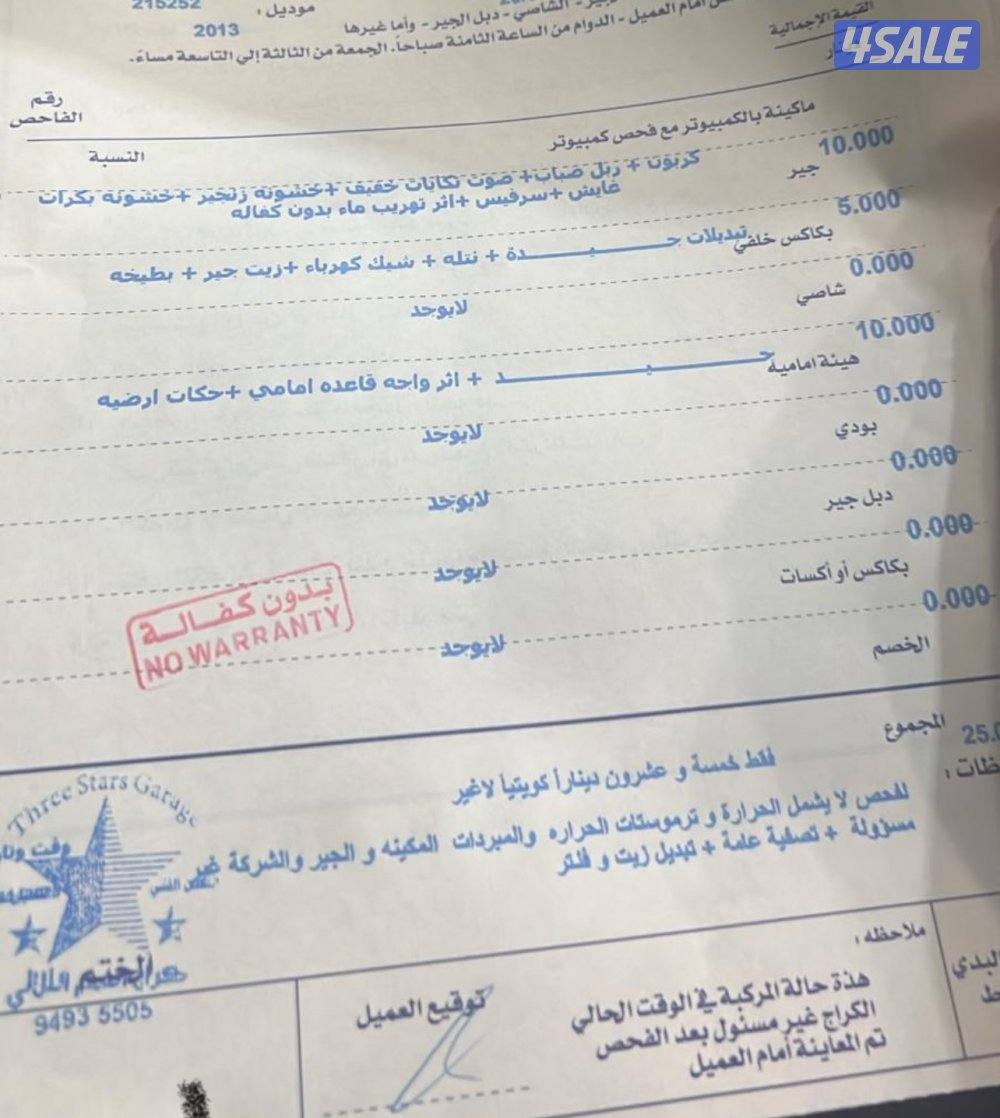 215252
موديل :
2013
4SALE
القيمة الإجمالية
أمام العميل - الدوام من الساعة الثامنة صباحاً. الجمعة من الثالثة إلى التاسعة مساءً.
الشاصي - دبل الجير - وأما غيرها
رقم
الفاحص
النسبة
ماكينة بالكمبيوتر مع فحص كمبيوتر
10.000
كربون + ربل ضباب + صوت تكايات خفيف + خشونه زنجير + خشونه بكرات
قايش + سرفيس + اثر تهريب ماء بدون كفاله
جير
5.000
تبديلات جـــيـــدة + نتله + شيك كهرباء + زيت جير + بطيخه
بكاكس خلفي
0.000
لايوجد
شاصي
10.000
جـــيـــد + اثر واجه قاعده امامي + حكات ارضيه
هيئة امامية
0.000
لايوجد
بودي
0.000
لايوجد
دبل جير
0.000
لايوجد
بكاكس أو أكسات
0.000
لايوجد
الخصم
بدون كفالة
NO WARRANTY
المجموع
فقط خمسة و عشرون ديناراً كويتياً لاغير
للحص لا يشمل الحرارة و ترموستات الحراره والمبردات المكينه و الجير والشركة غير
مسؤولة + تصفية عامة + تبديل زيت و فلتر
Three Stars Garage
الختم
9493 5505
توقيع العميل
ملاحظه :
هذة حالة المركبة في الوقت الحالي
الكراج غير مسئول بعد الفحص
تم المعاينة أمام العميل